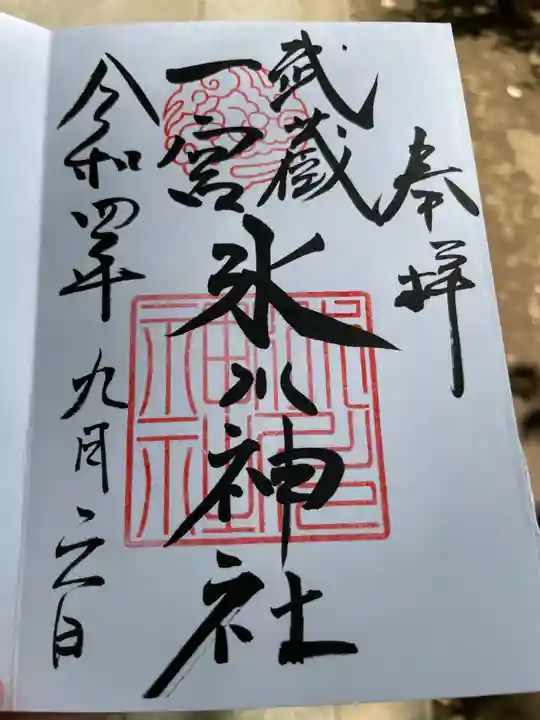 奉拝
武蔵
一宮
氷川神社
令和四年九月六日